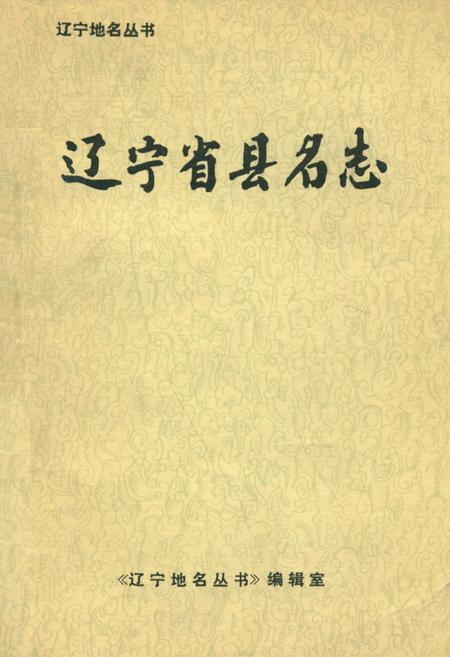 辽宁地名丛书
辽宁省县名志
《辽宁地名丛书》编辑室